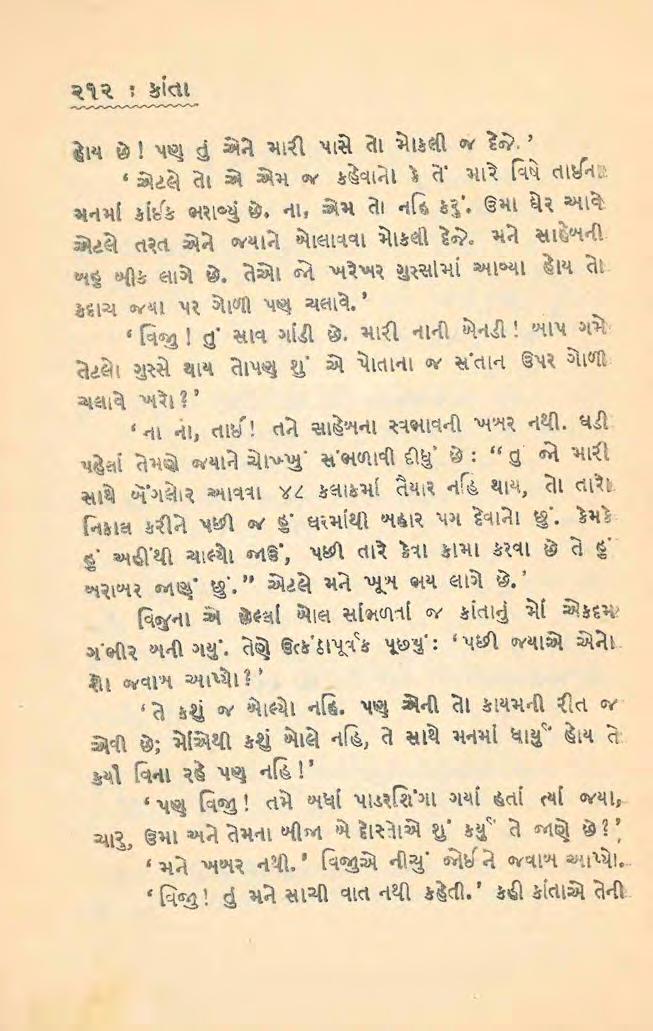 ૨૧૨ : કાંતા
હોય છે! પણ તું એને મારી પાસે તો મોકલી જ દેજે.’
‘એટલે તો એ એમ જ કહેવાનો કે તેં મારે વિષે તાઈના
મનમાં કાંઈક ભરાવ્યું છે. ના, એમ તો નહિ કરું. ઉમા ઘેર આવે
એટલે તરત એને જયાને બોલાવવા મોકલી દેજે. મને સાહેબની
બહુ બીક લાગે છે. તેઓ જો ખરેખર ગુસ્સામાં આવ્યા હોય તો
કદાચ જયા પર ગોળી પણ ચલાવે.’
‘વિજુ! તું સાવ ગાંડી છે. મારી નાની બેનડી! બાપ ગમે
તેટલો ગુસ્સે થાય તોપણ શું એ પોતાના જ સંતાન ઉપર ગોળી
ચલાવે ખરો?’
‘ના ના, તાઈ! તને સાહેબના સ્વભાવની ખબર નથી. ઘડી
પહેલાં તેમણે જયાને ચોખ્ખું સંભળાવી દીધું છે : “તું જો મારી
સાથે બેંગલોર આવવા ૪૮ કલાકમાં તૈયાર નહિ થાય, તો તારો
નિકાલ કરીને પછી જ હું ઘરમાંથી બહાર પગ દેવાનો છું. કેમકે
હું અહીંથી ચાલ્યો જાઉં, પછી તારે કેવા કામા કરવા છે તે હું
બરાબર જાણું છું.” એટલે મને ખૂબ ભય લાગે છે.’
વિજુના એ છેલ્લાં બોલ સાંભળતાં જ કાંતાનું મોં એકદમ
ગંભીર બની ગયું. તેણે ઉત્કંઠાપૂર્વક પૂછ્યું : ‘પછી જયાએ એનો
શો જવાબ આપ્યો?’
‘તે કશું જ બોલ્યો નહિ. પણ એની તો કાયમની રીત જ
એવી છે; મોંએથી કશું બોલે નહિ, તે સાથે મનમાં ધાર્યું હોય તે
કર્યા વિના રહે પણ નહિ!’
‘પણ વિજુ! તમે બધાં પાડરશિંગા ગયાં હતાં ત્યાં જયા,
ચારુ, ઉમા અને તેમના બીજા બે દોસ્તોએ શું કર્યું તે જાણે છે?’
‘મને ખબર નથી.’ વિજુએ નીચું જોઈને જવાબ આપ્યો.
‘વિજુ! તું મને સાચી વાત નથી કહેતી.’ કહી કાંતાએ તેની